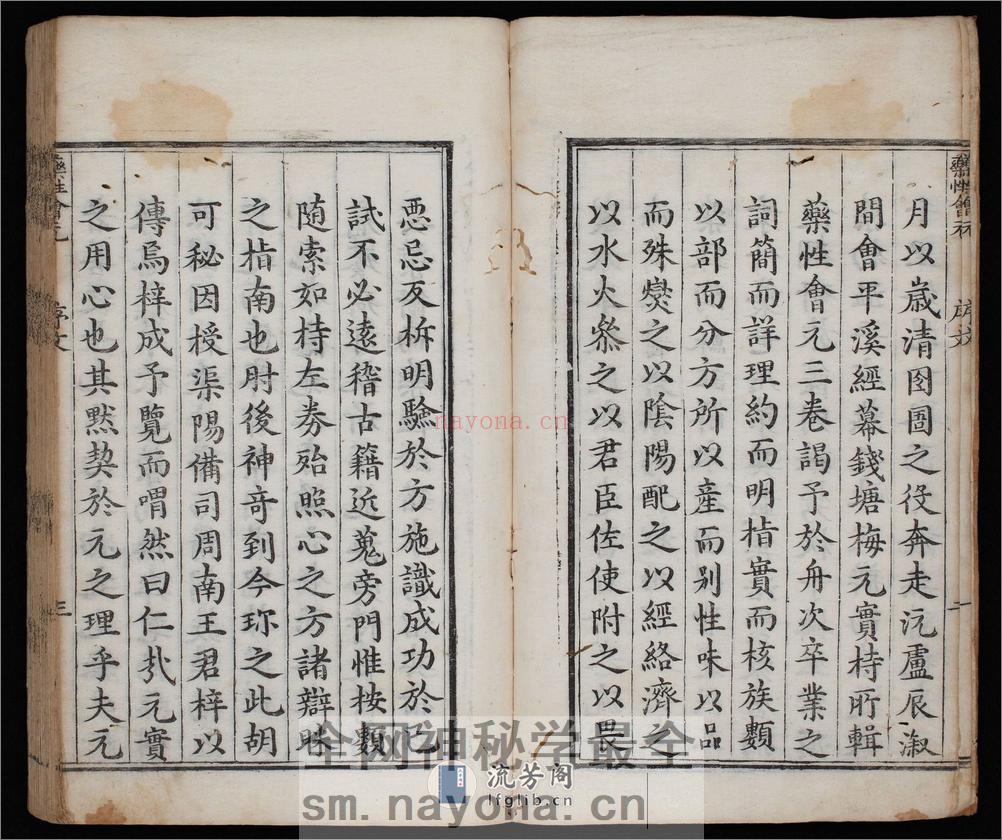 藥性會元
序文
二
月以歲清圄圖之役奔走沅盧辰溆
間會平溪經幕錢塘梅元實持所輯
藥性會元三卷謁予於舟次卒業之
詞簡而詳理約而明指實而核族類
以部而分方所以產而别性味以品
而殊爕之以陰陽配之以經絡濟之
以水火叅之以君臣佐使附之以畏
惡忌反析明驗於方施識成功於既
試不必遠稽古籍近蒐旁門惟按類
随索如持左券殆照心之方諸辯眯
之指南也肘後神奇到今珎之此胡
可秘因授渠陽備司周南王君梓以
傳焉梓成予覽而喟然曰仁哉元實
之用心也其黙契於元之理乎夫元
藥性會元
序文
三
nayona.cn
全网神秘学最全
流芳阁
lfglib.cn
sm.nayona.cn